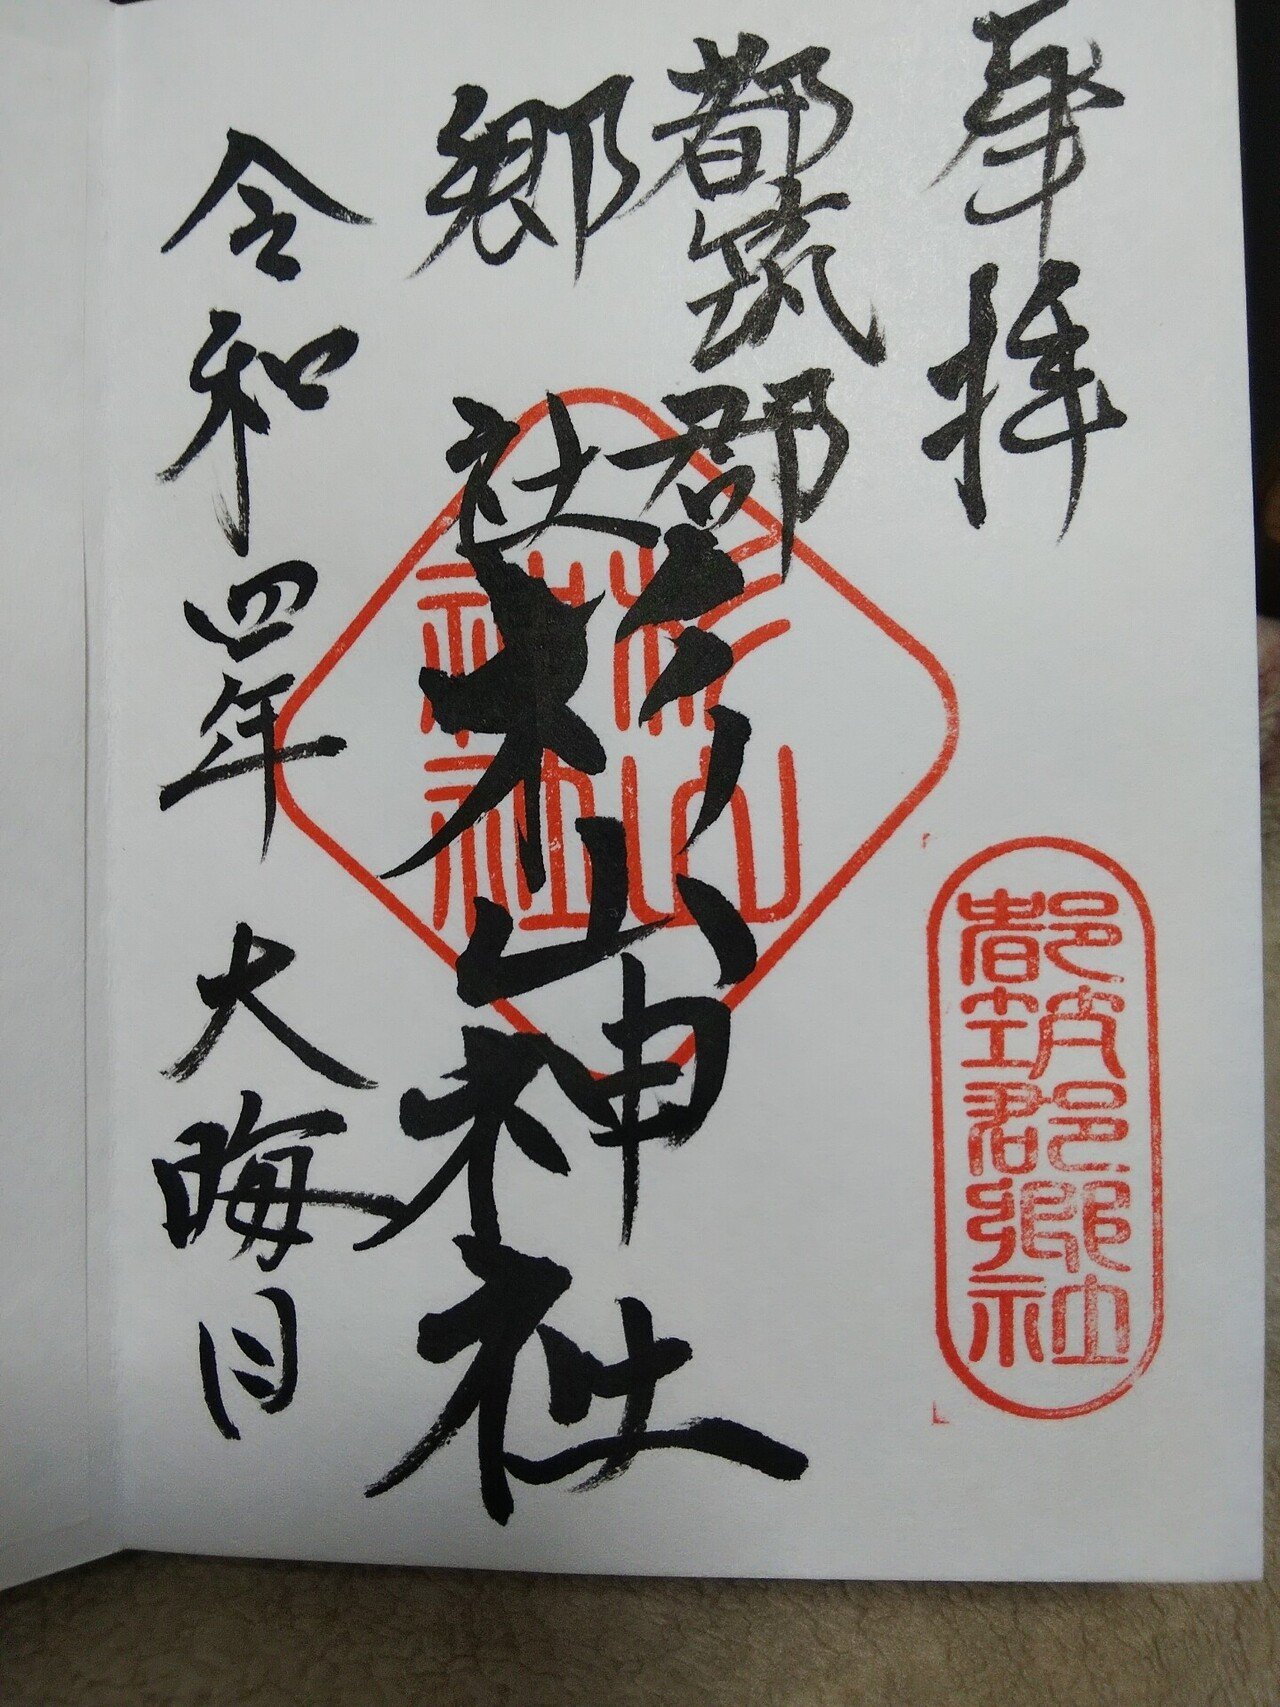 奉拝
都筑郡
郷社
杉山神社
令和四年 大晦日
杉山神社
都筑郡郷社